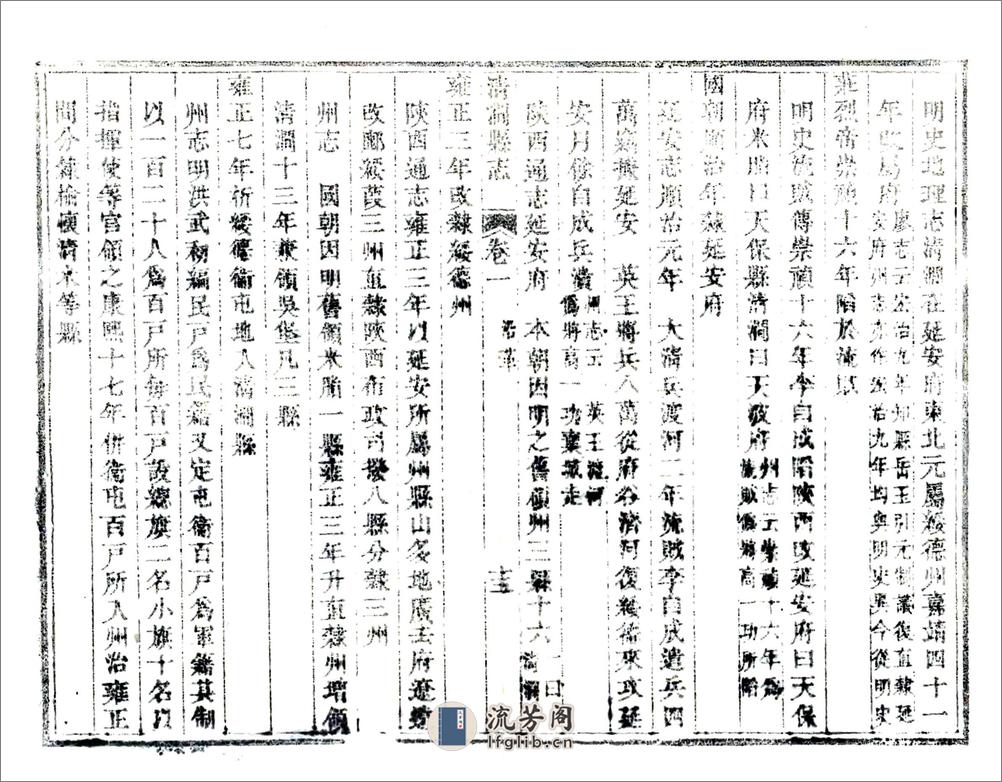 明史地理志清澗在延安府東北元屬綏德州嘉靖四十一
年改屬府廖志云弘治九年知縣岳玉引元制叢復直隸延
安府州志亦作弘治九年均與明史異今從明史
莊烈帝崇禎十六年陷於流賊
明史流賊傳崇禎十六年李自成陷陝西改延安府曰天保
府米脂曰天保縣清澗曰天波府州志云崇禎十六年為
流賊偽將高一功所陷
國朝順治年隸延安府
延安志順治元年 大清兵渡河二年流賊李自成遣兵四
萬寇擾延安 英王將兵八萬從府谷濟河復綏德來攻延
安月餘自成兵潰州志云 英王渡河
偽將高一功棄城走
陝西通志延安府 本朝因明之舊領州三縣十六一曰
清澗
清澗縣志 卷一 沿革 十三
雍正三年改隸綏德州
陝西通志雍正三年以延安所屬州縣山多地廣去府遼遠
改鄜綏葭三州直隸陝西布政司撥八縣分隸三州
州志 國朝因明舊領米脂一縣雍正三年升直隸州增領
清澗十三年兼領吳堡凡三縣
雍正七年析綏德衛屯地入清澗縣
州志明洪武初編民戶為民籍又定屯衛百戶為軍籍其制
以一百二十人為百戶所每百戶設總旗二名小旗十名以
指揮使等官領之康熙十七年併衛屯百戶所入州治雍正
間分隸榆懷清米等縣
流芳阁
lfglib.cn